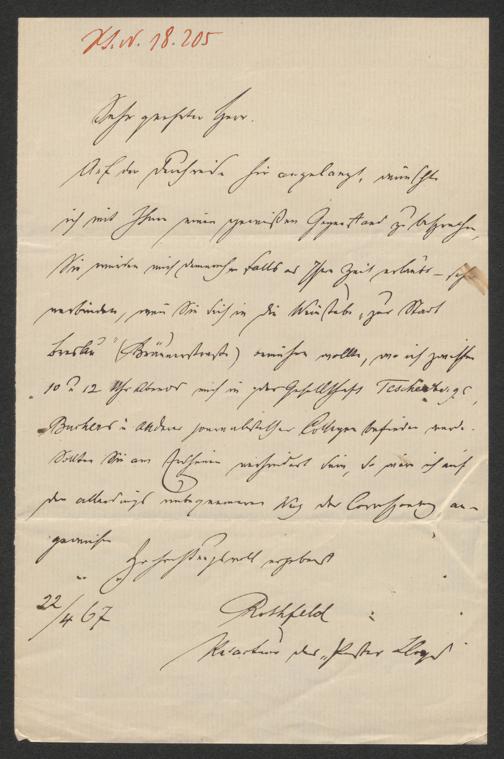 H.I.N. 18.205
Sehr geehrter Herr.
Auf der Durchreise hier angelangt, wünschte
ich mit Ihnen einen gewissen Gegenstand zu besprechen,
Sie würden mich demnach falls es Ihre Zeit erlaubt – sehr
verbinden, wenn Sie sich in die Weinstube "zur Stadt
Breslau" (Brünnerstraße) bemühen wollten, wo ich zwischen
10 u 12 Uhr Abends mich in der Gesellschaft Teschenbergs,
Buchers u anderer journalistischer Collegen befinden werde.
Sollten Sie am Erscheinen verhindert sein, so wäre ich auf
den allerdings unbequemeren Weg der Correspondenz an-
gewiesen
Hochachtungsvoll ergebenst
22/4 67
Rothfeld
Redacteur des "Pester Lloyd"